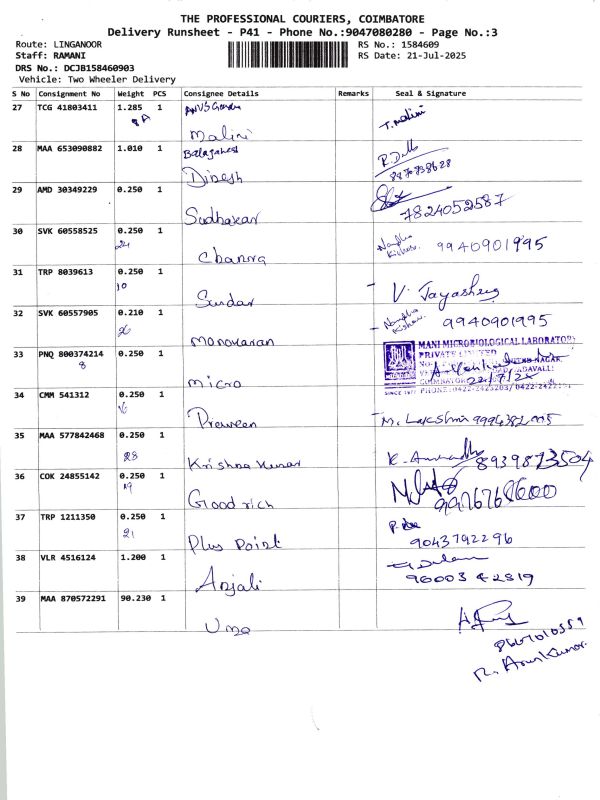 THE PROFESSIONAL COURIERS, COIMBATORE
Delivery Runsheet - P41 - Phone No.:9047080280 - Page No.:3
Route: LINGANOOR
Staff: RAMANI
DRS No.: DCJB158460903
Vehicle: Two Wheeler Delivery
RS No.: 1584609
RS Date: 21-Jul-2025
S No Consignment No Weight PCS Consignee Details Remarks Seal & Signature
27 TCG 41803411 1.285 1
Malini T. malini
28 MAA 653090882 1.010 1
Dinesh 8870738628
29 AMD 30349229 0.250 1
Sudhakar 7824052587
30 SVK 60558525 0.250 1
Chanra Nandha Kishore. 9940901995
31 TRP 8039613 0.250 1
10 Sundar V. Jayashree
32 SVK 60557905 0.210 1
26 Manoharan Nandha Kishore. 9940901995
33 PNQ 800374214 0.250 1
8 micro
MANI MICROBIOLOGICAL LABORATORY
PRIVATE LIMITED
22/7/25
SINCE 1977 PHONE: 0422-2425203
34 CMM 541312 0.250 1
16 Praveen M. Lakshmi
35 MAA 577842468 0.250 1
28 Krishna Kumar 8939873504
36 COK 24855142 0.250 1
19 Goodrich 9976768600
37 TRP 1211350 0.250 1
21 Plus Point 9043792296
38 VLR 4516124 1.200 1
Anjali 9600342819
39 MAA 870572291 90.230 1
Uma
8667010559
R. Arun Kumar.